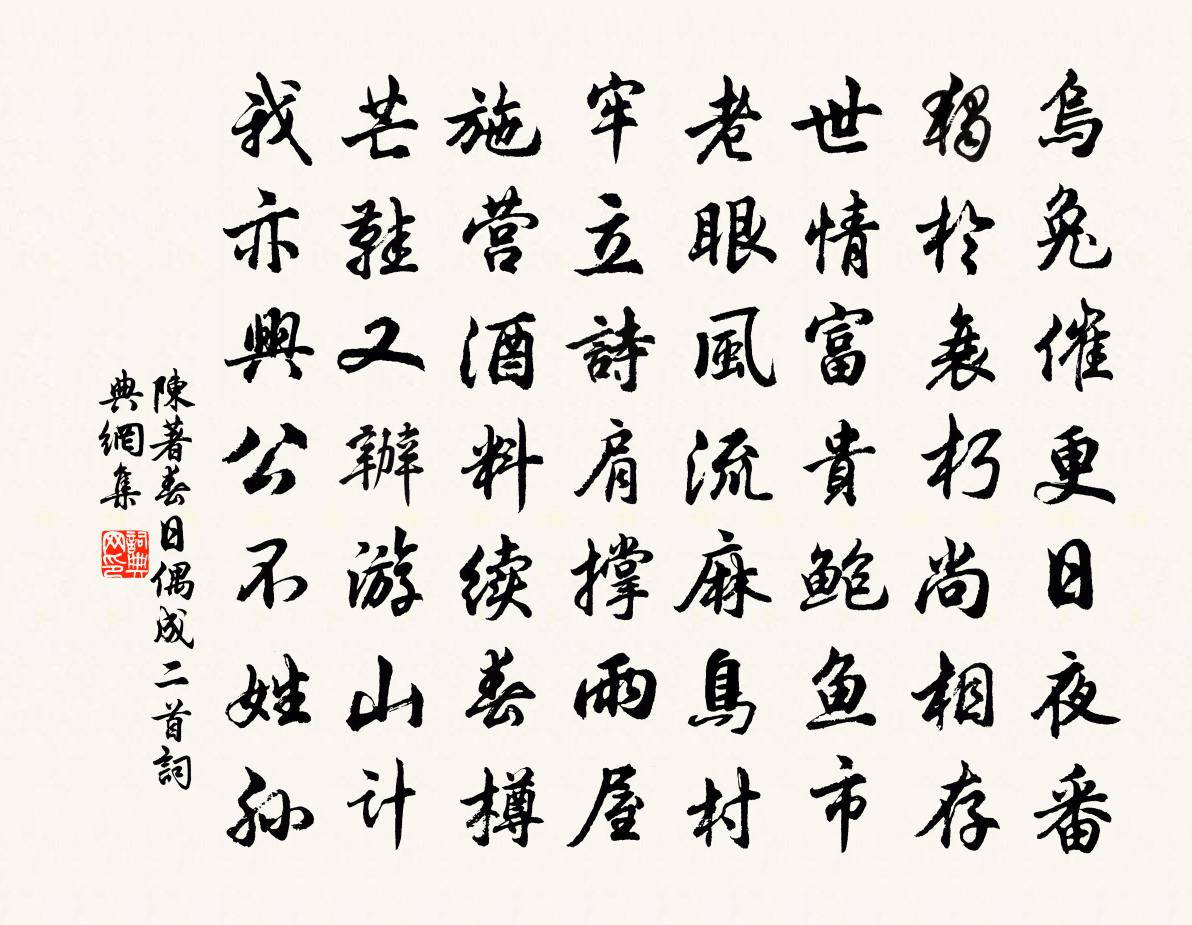 烏兔催更日夜番
獨於衰朽尚相存
世情富貴鮑魚市
老眼風流麻鳥村
牢立詩肩撑雨屋
施营酒料续春樽
芒鞋又辦游山计
我亦興公不姓孙
陳著春日偶成二首詞
典網集
詞典
网印